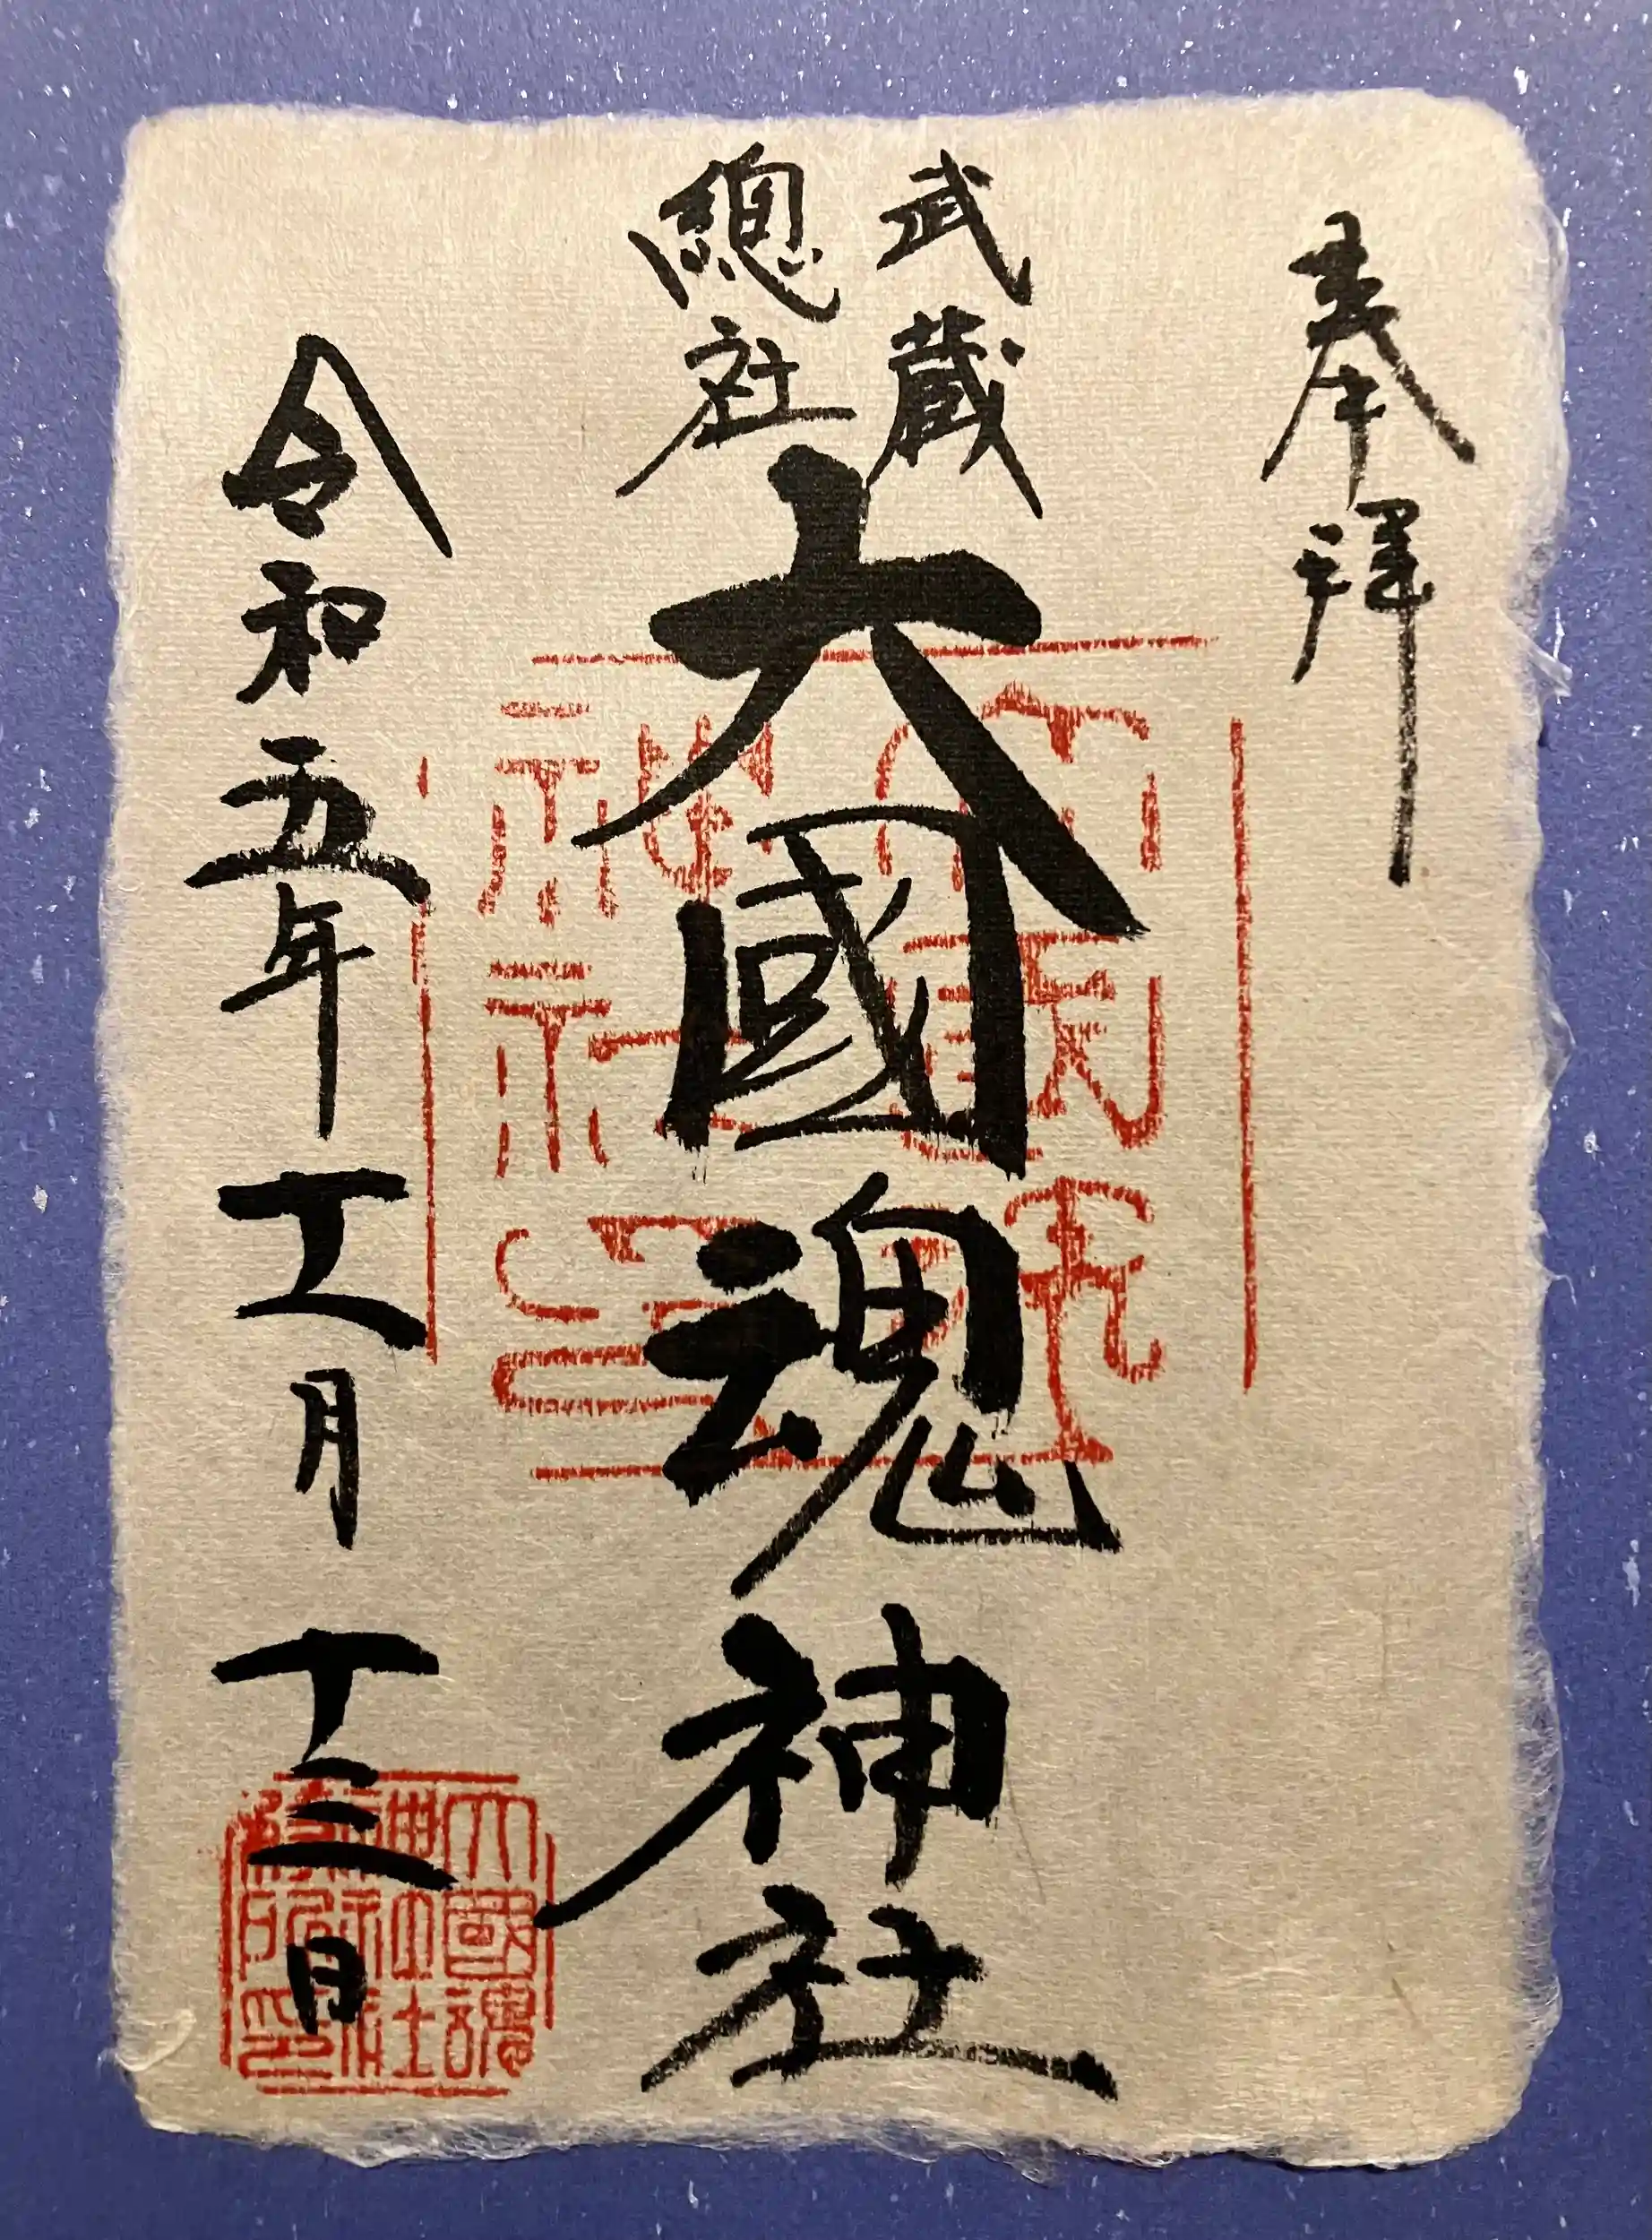 奉拝
武蔵
總社
大國魂神社
令和五年十一月十三日